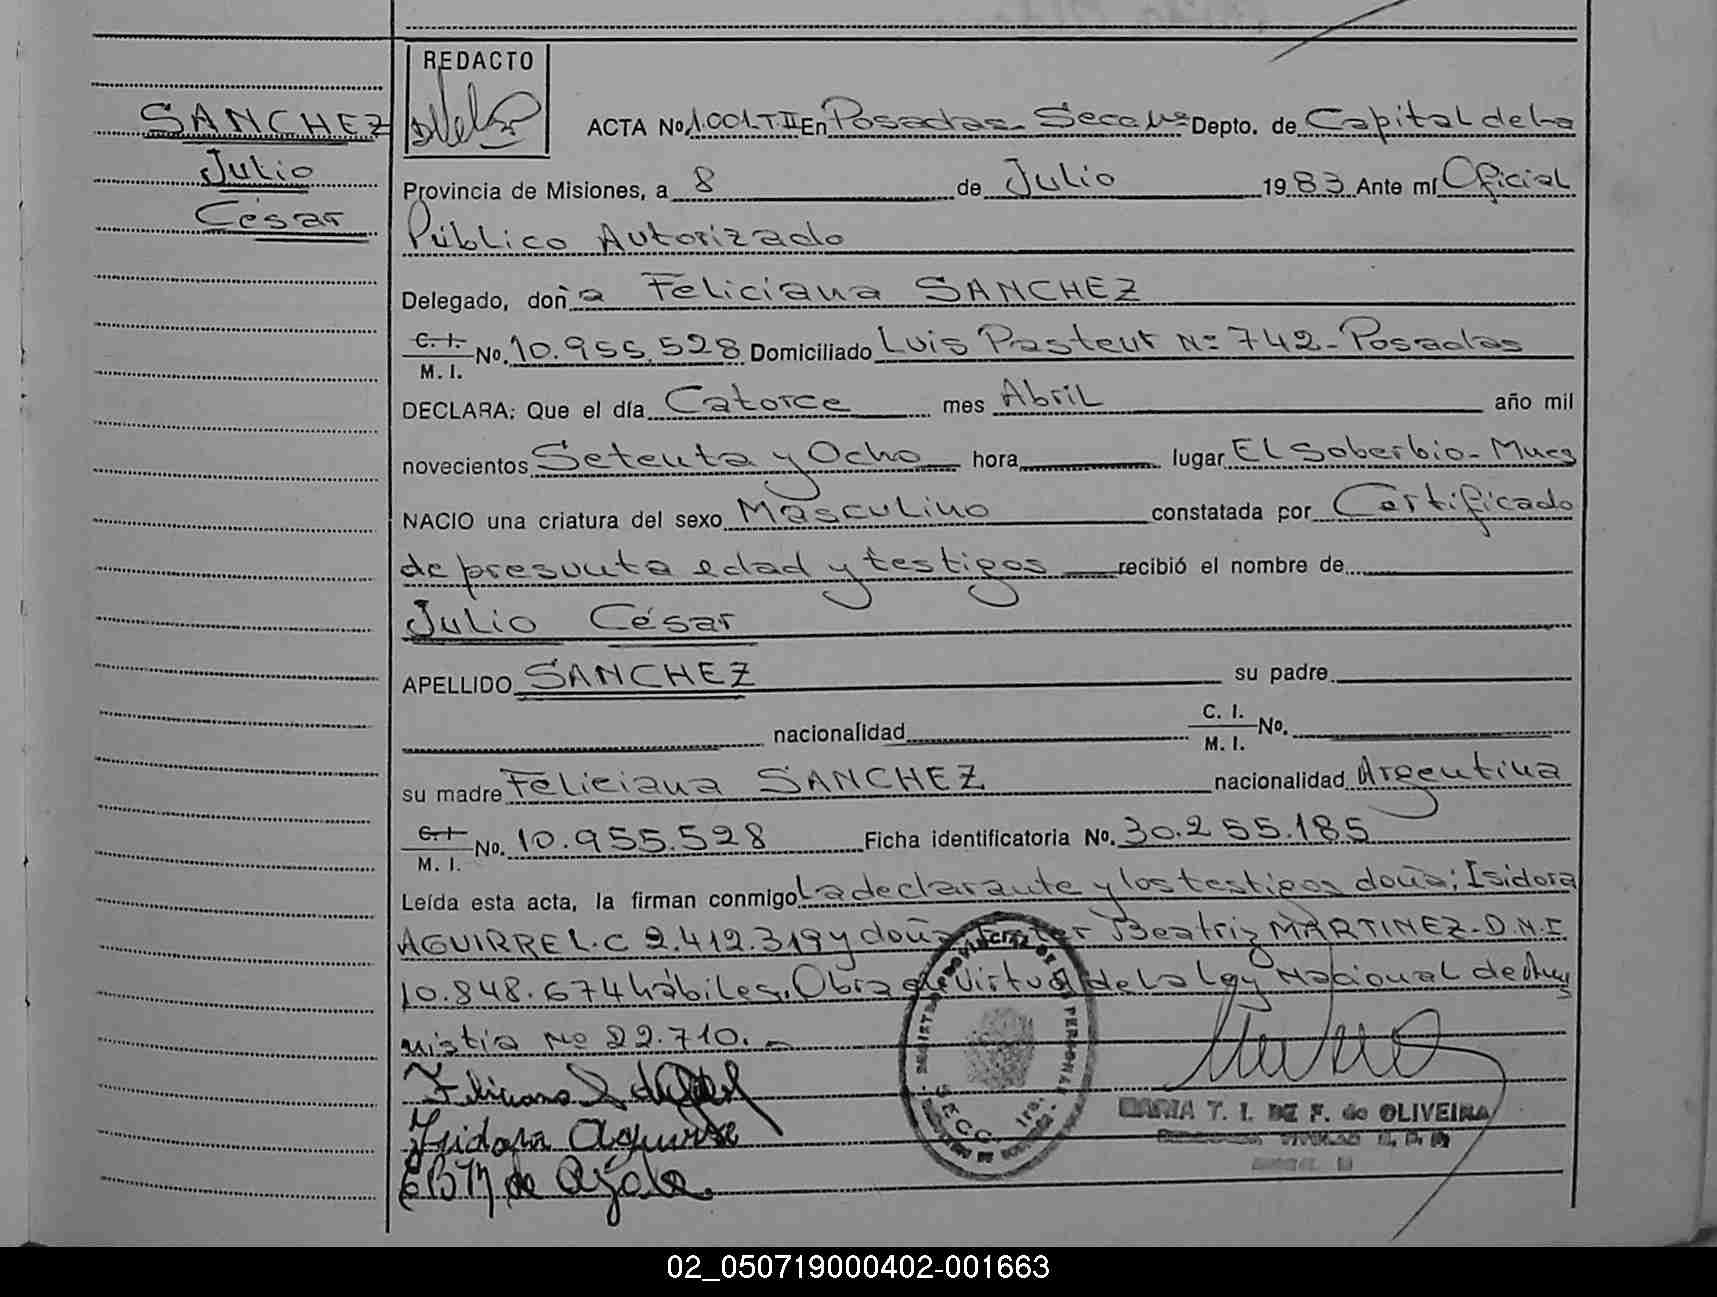 REDACTO
SANCHEZ
Julio
César
ACTA No 1.001-T II En Posadas - Secc. 1ra Depto. de Capital de la
Provincia de Misiones, a 8 de Julio 1983 Ante mí Oficial
Público Autorizado
Delegado, doña Feliciana SANCHEZ
C. I.
M. I. No. 10.955.528 Domiciliado Luis Pasteur Nº 742 - Posadas
DECLARA: Que el día Catorce mes Abril año mil
novecientos Setenta y Ocho hora lugar El Soberbio - Mnes
NACIO una criatura del sexo Masculino constatada por Certificado
de presunta edad y testigos recibió el nombre de
Julio César
APELLIDO SANCHEZ su padre
nacionalidad C. I.
M. I. No.
su madre Feliciana SANCHEZ nacionalidad Argentina
C. I.
M. I. No. 10.955.528 Ficha identificatoria No. 30.255.185
Leída esta acta, la firman conmigo La declarante y los testigos doña; Isidora
AGUIRRE L.C 2.412.319 y doña Ester Beatriz MARTINEZ - D.N.I
10.848.674 hábiles. Obra en virtud de la ley Nacional de Am
nistia Nº 22.710.-
Feliciana S
Isidora Aguirre
E B M de Ayala
SECC. 1ra.
MARIA T. I. DE F. de OLIVEIRA
02_050719000402-001663